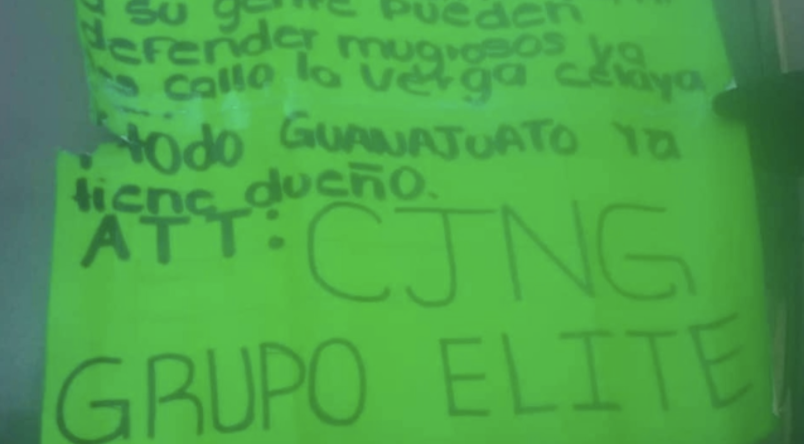 a su gente pueden
defender mugrosos ya
les callo la verga celaya
y todo GUANAJUATO Ya
tiene dueño.
ATT: CJNG
GRUPO ELITE